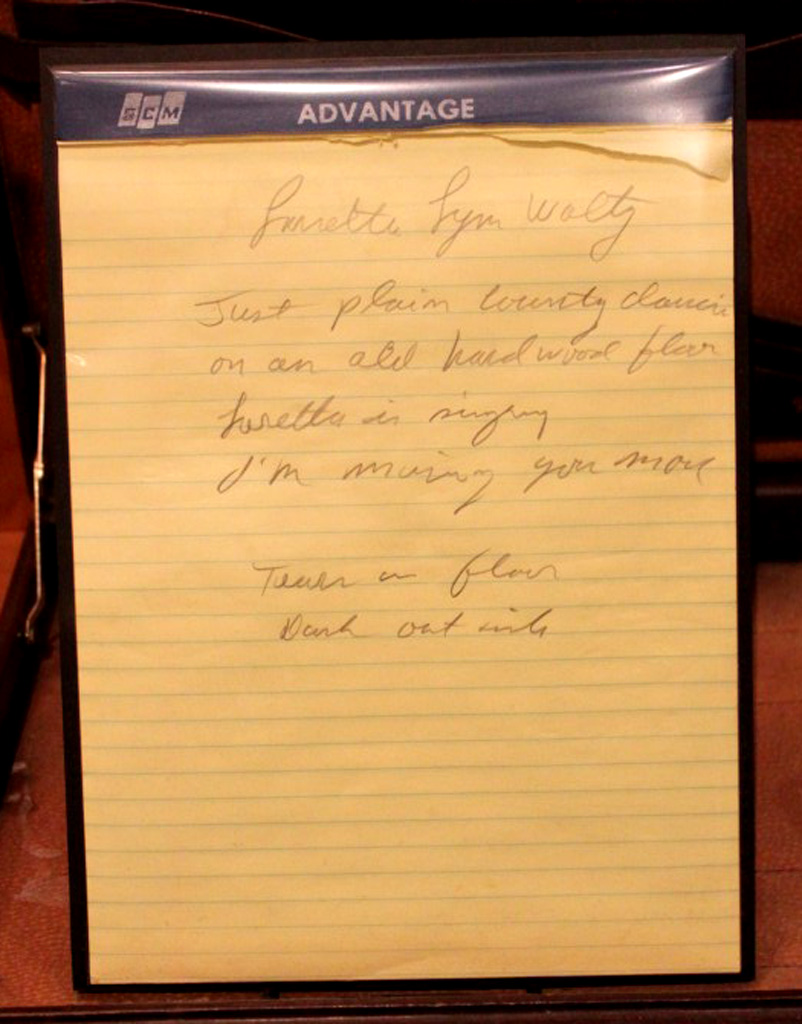 SCM ADVANTAGE
Loretta Lynn Waltz
Just plain country dancin
on an old hardwood floor
Loretta is singing
I'm missing you more
Tears on floor
Dark out side